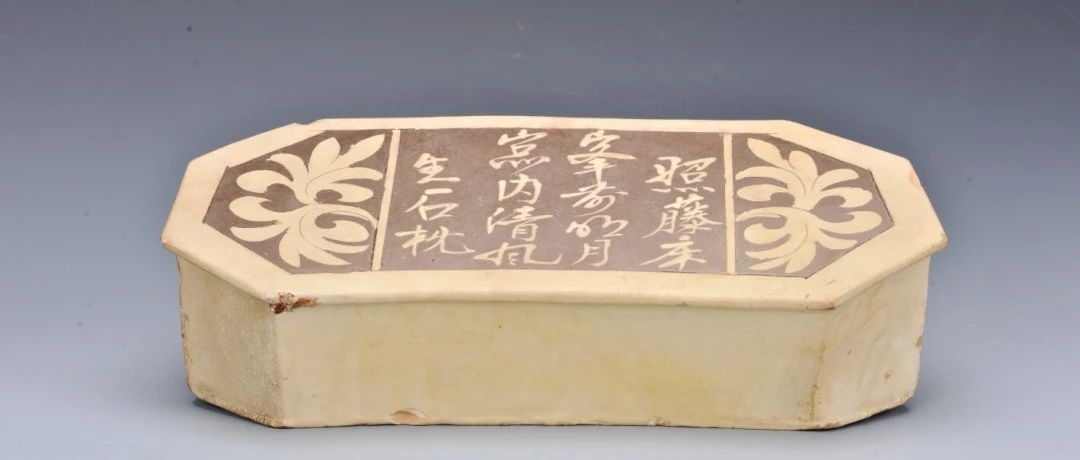 照藤床
峯前明月
窓内清風
生石枕